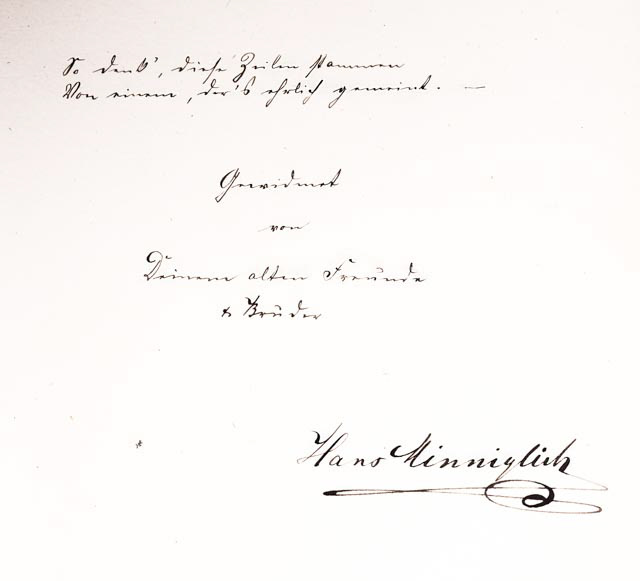 So denk', diese Zeilen stammen
Von einem, der's ehrlich gemeint. —
Gewidmet
von
Deinem alten Freunde
& Bruder
Hans Minniglich